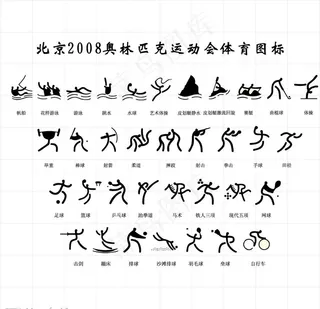 北京2008奥林匹克运动会体育图标
帆船 花样游泳 游泳 跳水 水球 艺术体操 皮划艇静水 皮划艇激流回旋 赛艇 曲棍球 体操
举重 棒球 射箭 柔道 摔跤 射击 拳击 手球 田径
足球 篮球 乒乓球 跆拳道 马术 铁人三项 现代五项 网球
击剑 蹦床 排球 沙滩排球 羽毛球 垒球 自行车